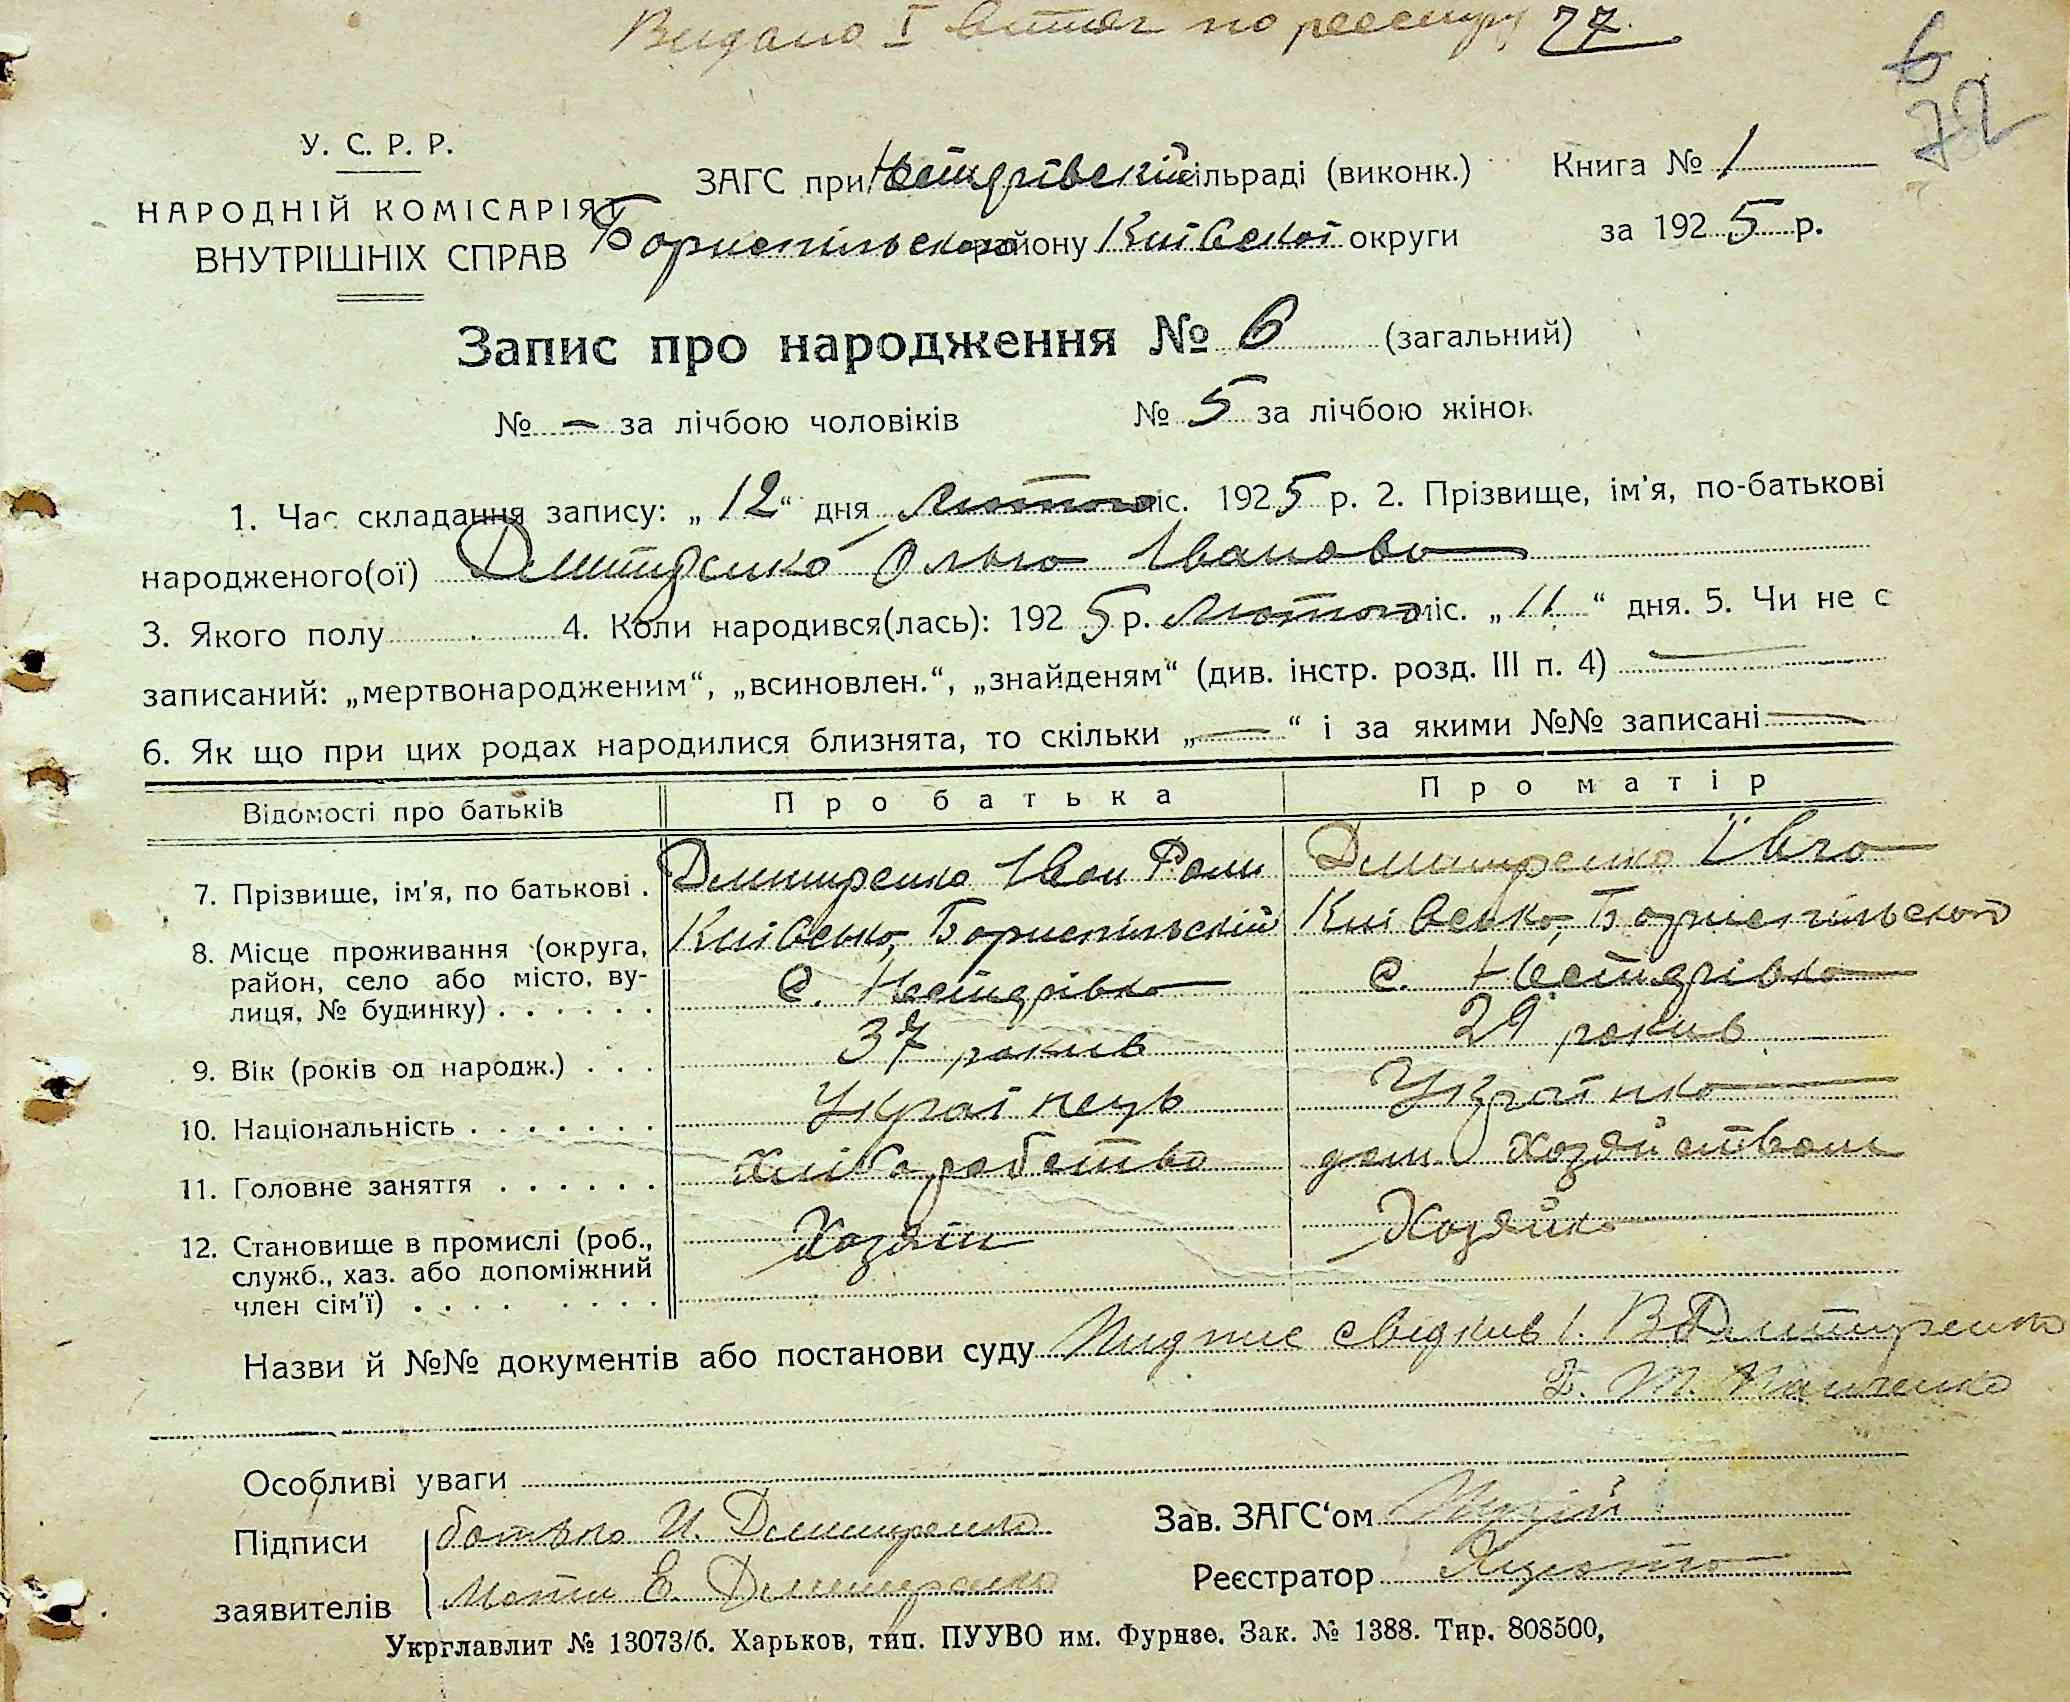 Видано I витяг по реестру 27.
6
72
У. С. Р. Р.
НАРОДНІЙ КОМІСАРІЯТ
ВНУТРІШНІХ СПРАВ
ЗАГС при сільраді (виконк.)
Бориспільского району Киівскоі округи
Книга № 1
за 1925 р.
Запис про народження № 6 (загальний)
№ — за лічбою чоловіків № 5 за лічбою жінок
1. Час складання запису: „12“ дня Лютого міс. 1925 р. 2. Прізвище, ім'я, по-батькові
народженого(ої) Дмитренко Ольга Іванова
3. Якого полу 4. Коли народився(лась): 1925 р. Лютого міс. „11“ дня. 5. Чи не є
записаний: „мертвонародженим“, „всиновлен.“, „знайденям“ (див. інстр. розд. III п. 4) —
6. Як що при цих родах народилися близнята, то скільки „—“ і за якими №№ записані —
Відомості про батьків Про батька Про матір
7. Прізвище, ім'я, по батькові . Дмитренко Іван Ром Дмитренко Ївга
8. Місце проживання (округа, район, село або місто, вулиця, № будинку) . . . . . . Киівсько, Бориспільскій Киівсько, Бориспільского
с. с.
9. Вік (років од народж.) . . . 37 рокив 29 рокив
10. Національність . . . . . . . Украінець Украінка
11. Головне заняття . . . . . . Хлібаробство дом Хозяйством
12. Становище в промислі (роб., служб., хаз. або допоміжний член сім'ї) . . . . . . . . Хозяін Хозяйка
Назви й №№ документів або постанови суду Пидпис свідкив 1. В Дмитренко
2. Т.
Особливі уваги
Підписи заявителів батько И. Дмитренко
Мати Е. Дмитренко
Зав. ЗАГС‘ом
Реєстратор
Укрглавлит № 13073/б. Харьков, тип. ПУУВО им. Фурнзе. Зак. № 1388. Тир. 808500,